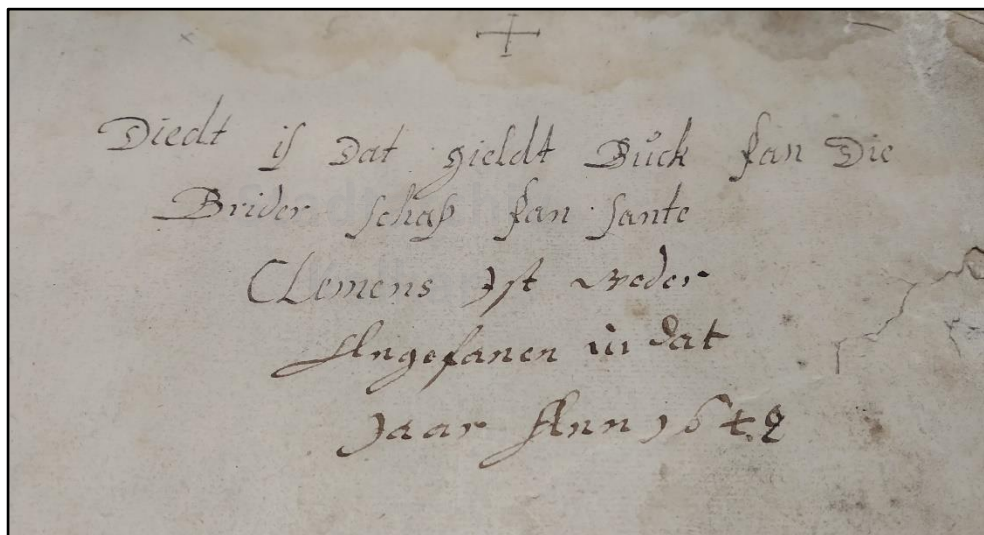 Diedt is Dat gieldt Bůck fan Die
Brider schaß fan sante
CLemens Jst weder
Angefanen in dat
Jaar Ann 1648